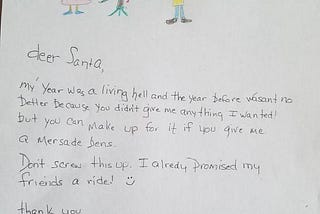 deer Santa,
my Year was a living hell and the year before wasant no
better because you didn't give me anything I wanted!
but you can make up for it if you give me
a Mersade Bens.
Don't screw this up. I alredy promised my
friends a ride!
thank you